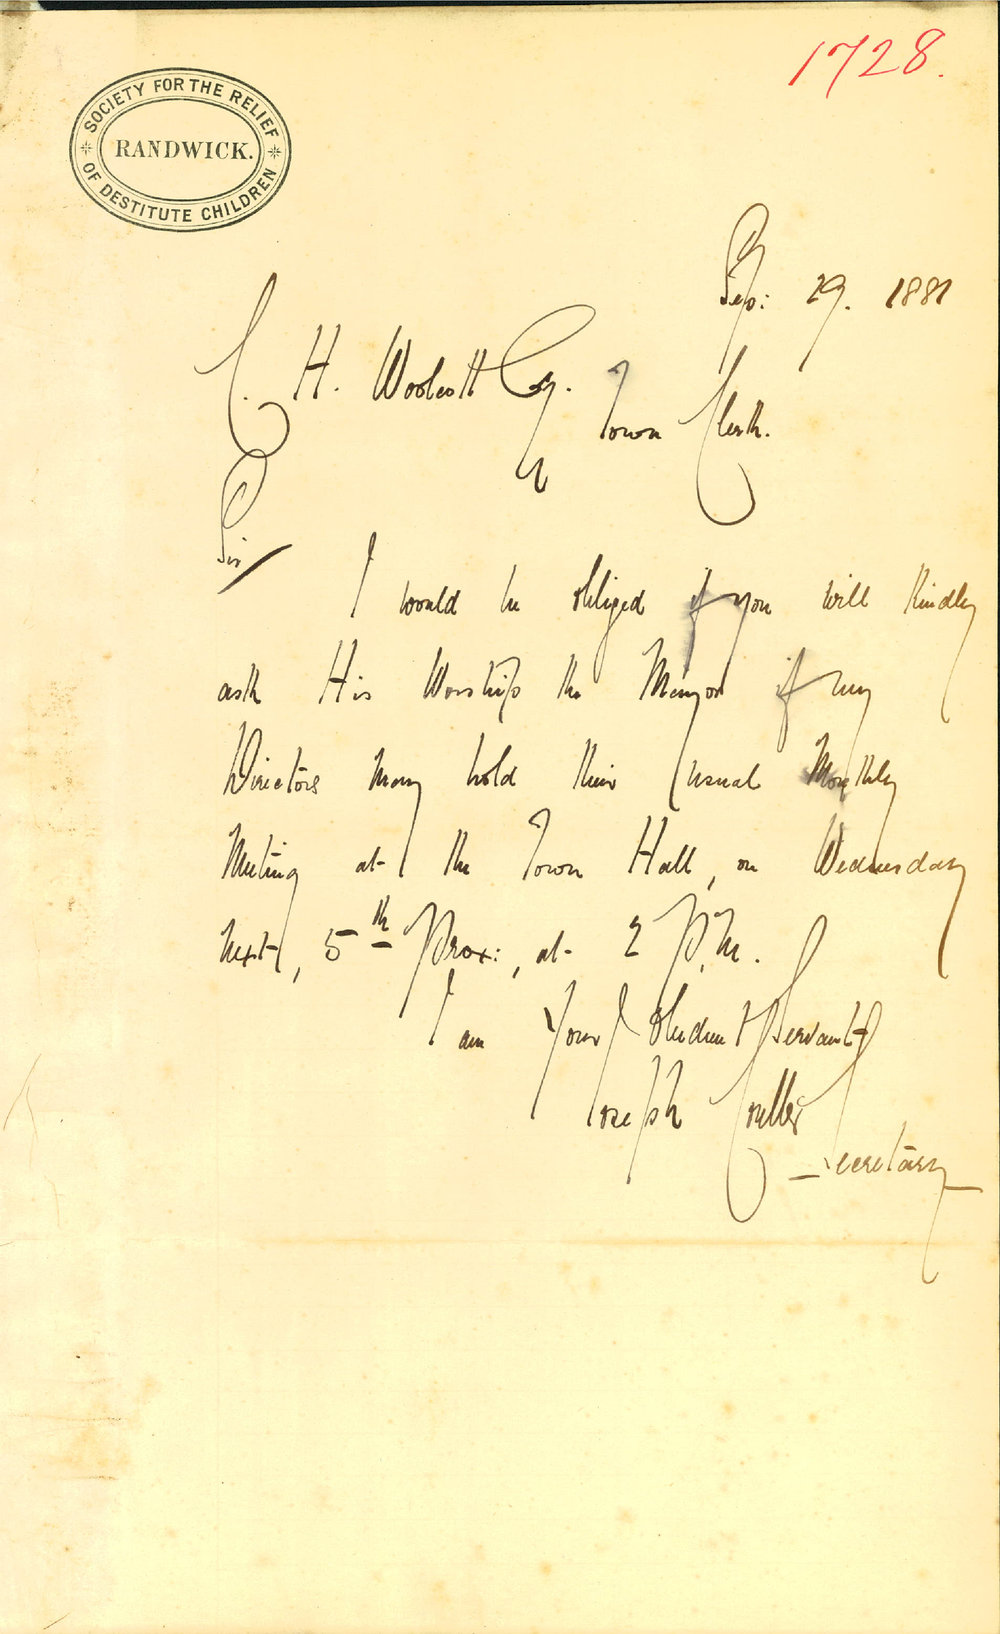 1728.
SOCIETY FOR THE RELIEF
RANDWICK.
OF DESTITUTE CHILDREN
Sep: 29. 1881
C. H. Woolcott Esq.
Town Clerk.
Sir/
I would be obliged if you will kindly
ask His Worship the Mayor if my
Directors may hold their usual Monthly
Meeting at the Town Hall, on Wednesday
next, 5th Prox:, at 2 P.M.
I am Your Obedient Servant
Joseph Coulter
Secretary